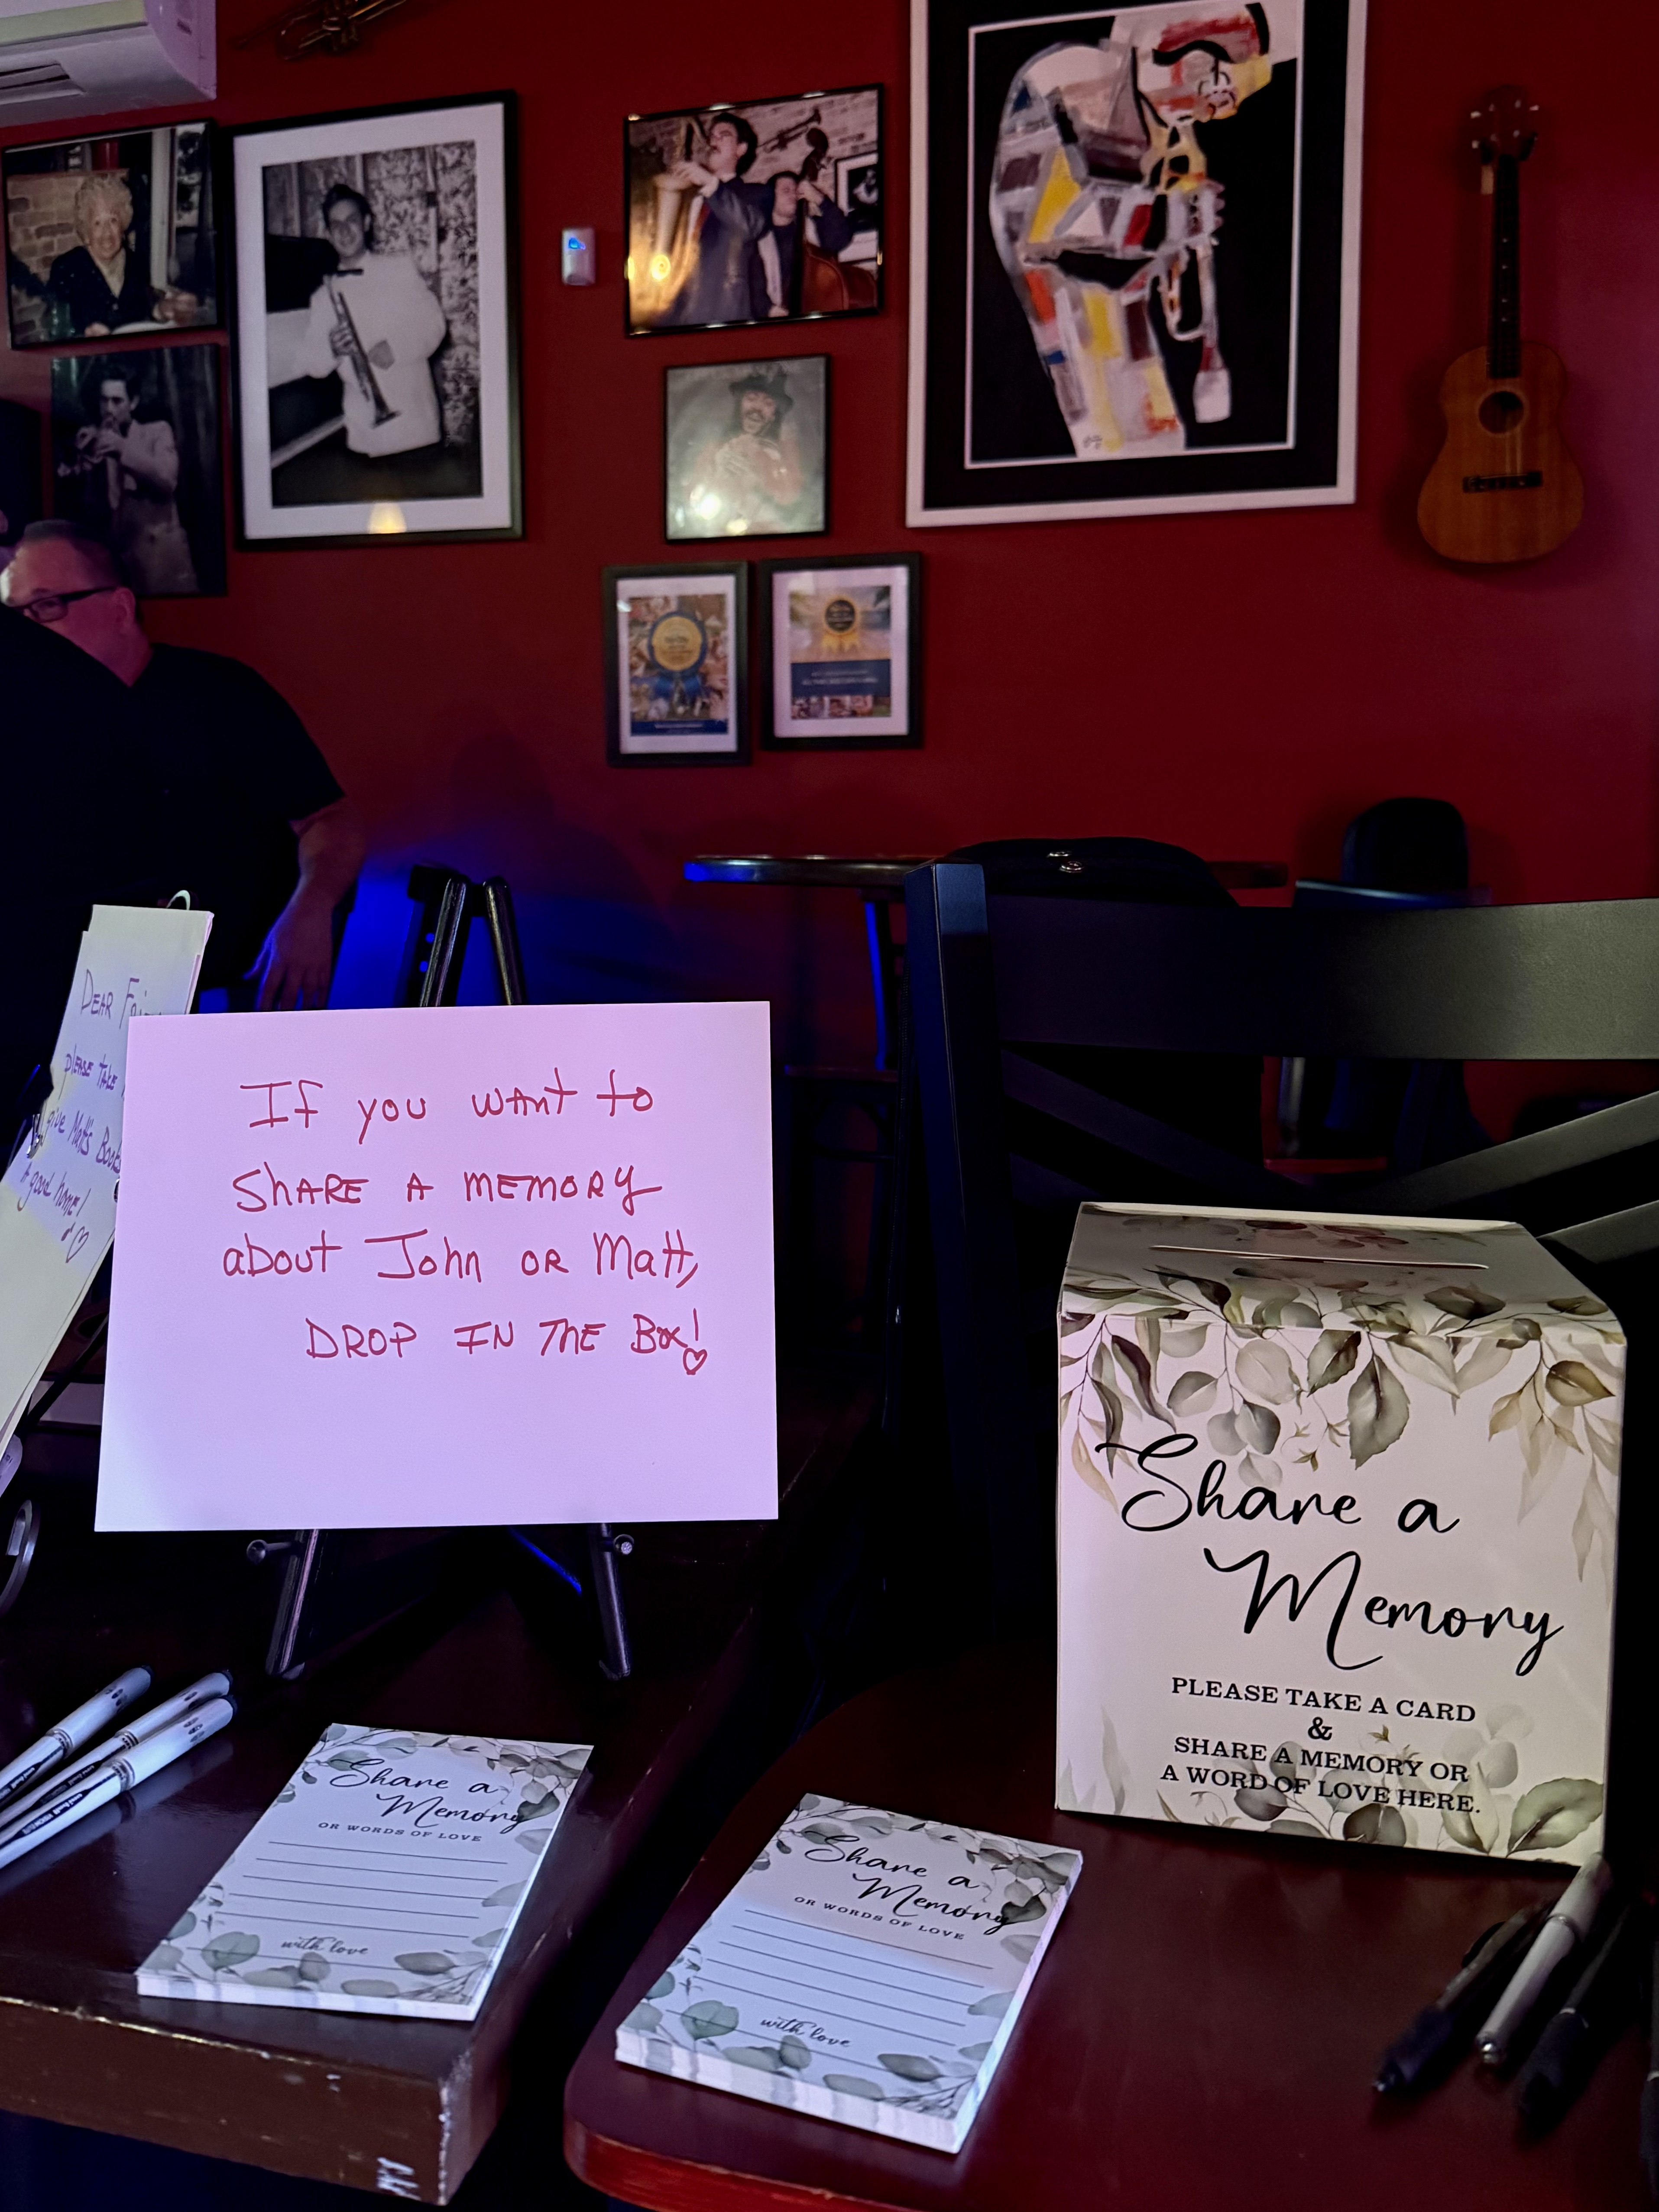 DEAR
please take
give Matt's Books
A good home!
If you want to
SHARE A MEMORY
about John OR Matt,
DROP IN THE Box!
Share a
Memory
PLEASE TAKE A CARD
&
SHARE A MEMORY OR
A WORD OF LOVE HERE.
Share a
Memory
OR WORDS OF LOVE
with love
Share a
Memory
OR WORDS OF LOVE
with love